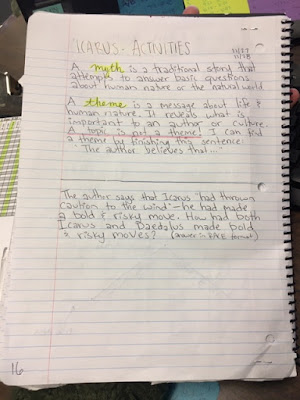 ICARUS - ACTIVITIES
11/27
11/28
A myth is a traditional story that
attempts to answer basic questions
about human nature or the natural world
A theme is a message about life &
human nature. It reveals what is
important to an author or culture
A topic is not a theme! I can find
a theme by finishing this sentence:
"The author believes that..."
The author says that Icarus "had thrown
caution to the wind" - he had made
a bold & risky move. How had both
Icarus and Daedalus made bold
& risky moves? (answer in RACE format)
16